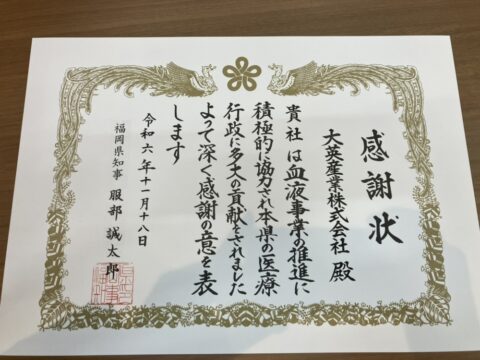 感謝状
大英産業株式会社 殿
貴社は血液事業の推進に
積極的に協力され本県の医療
行政に多大の貢献をされました
よって深く感謝の意を表
します
令和六年十一月十八日
福岡県知事 服部誠太郎